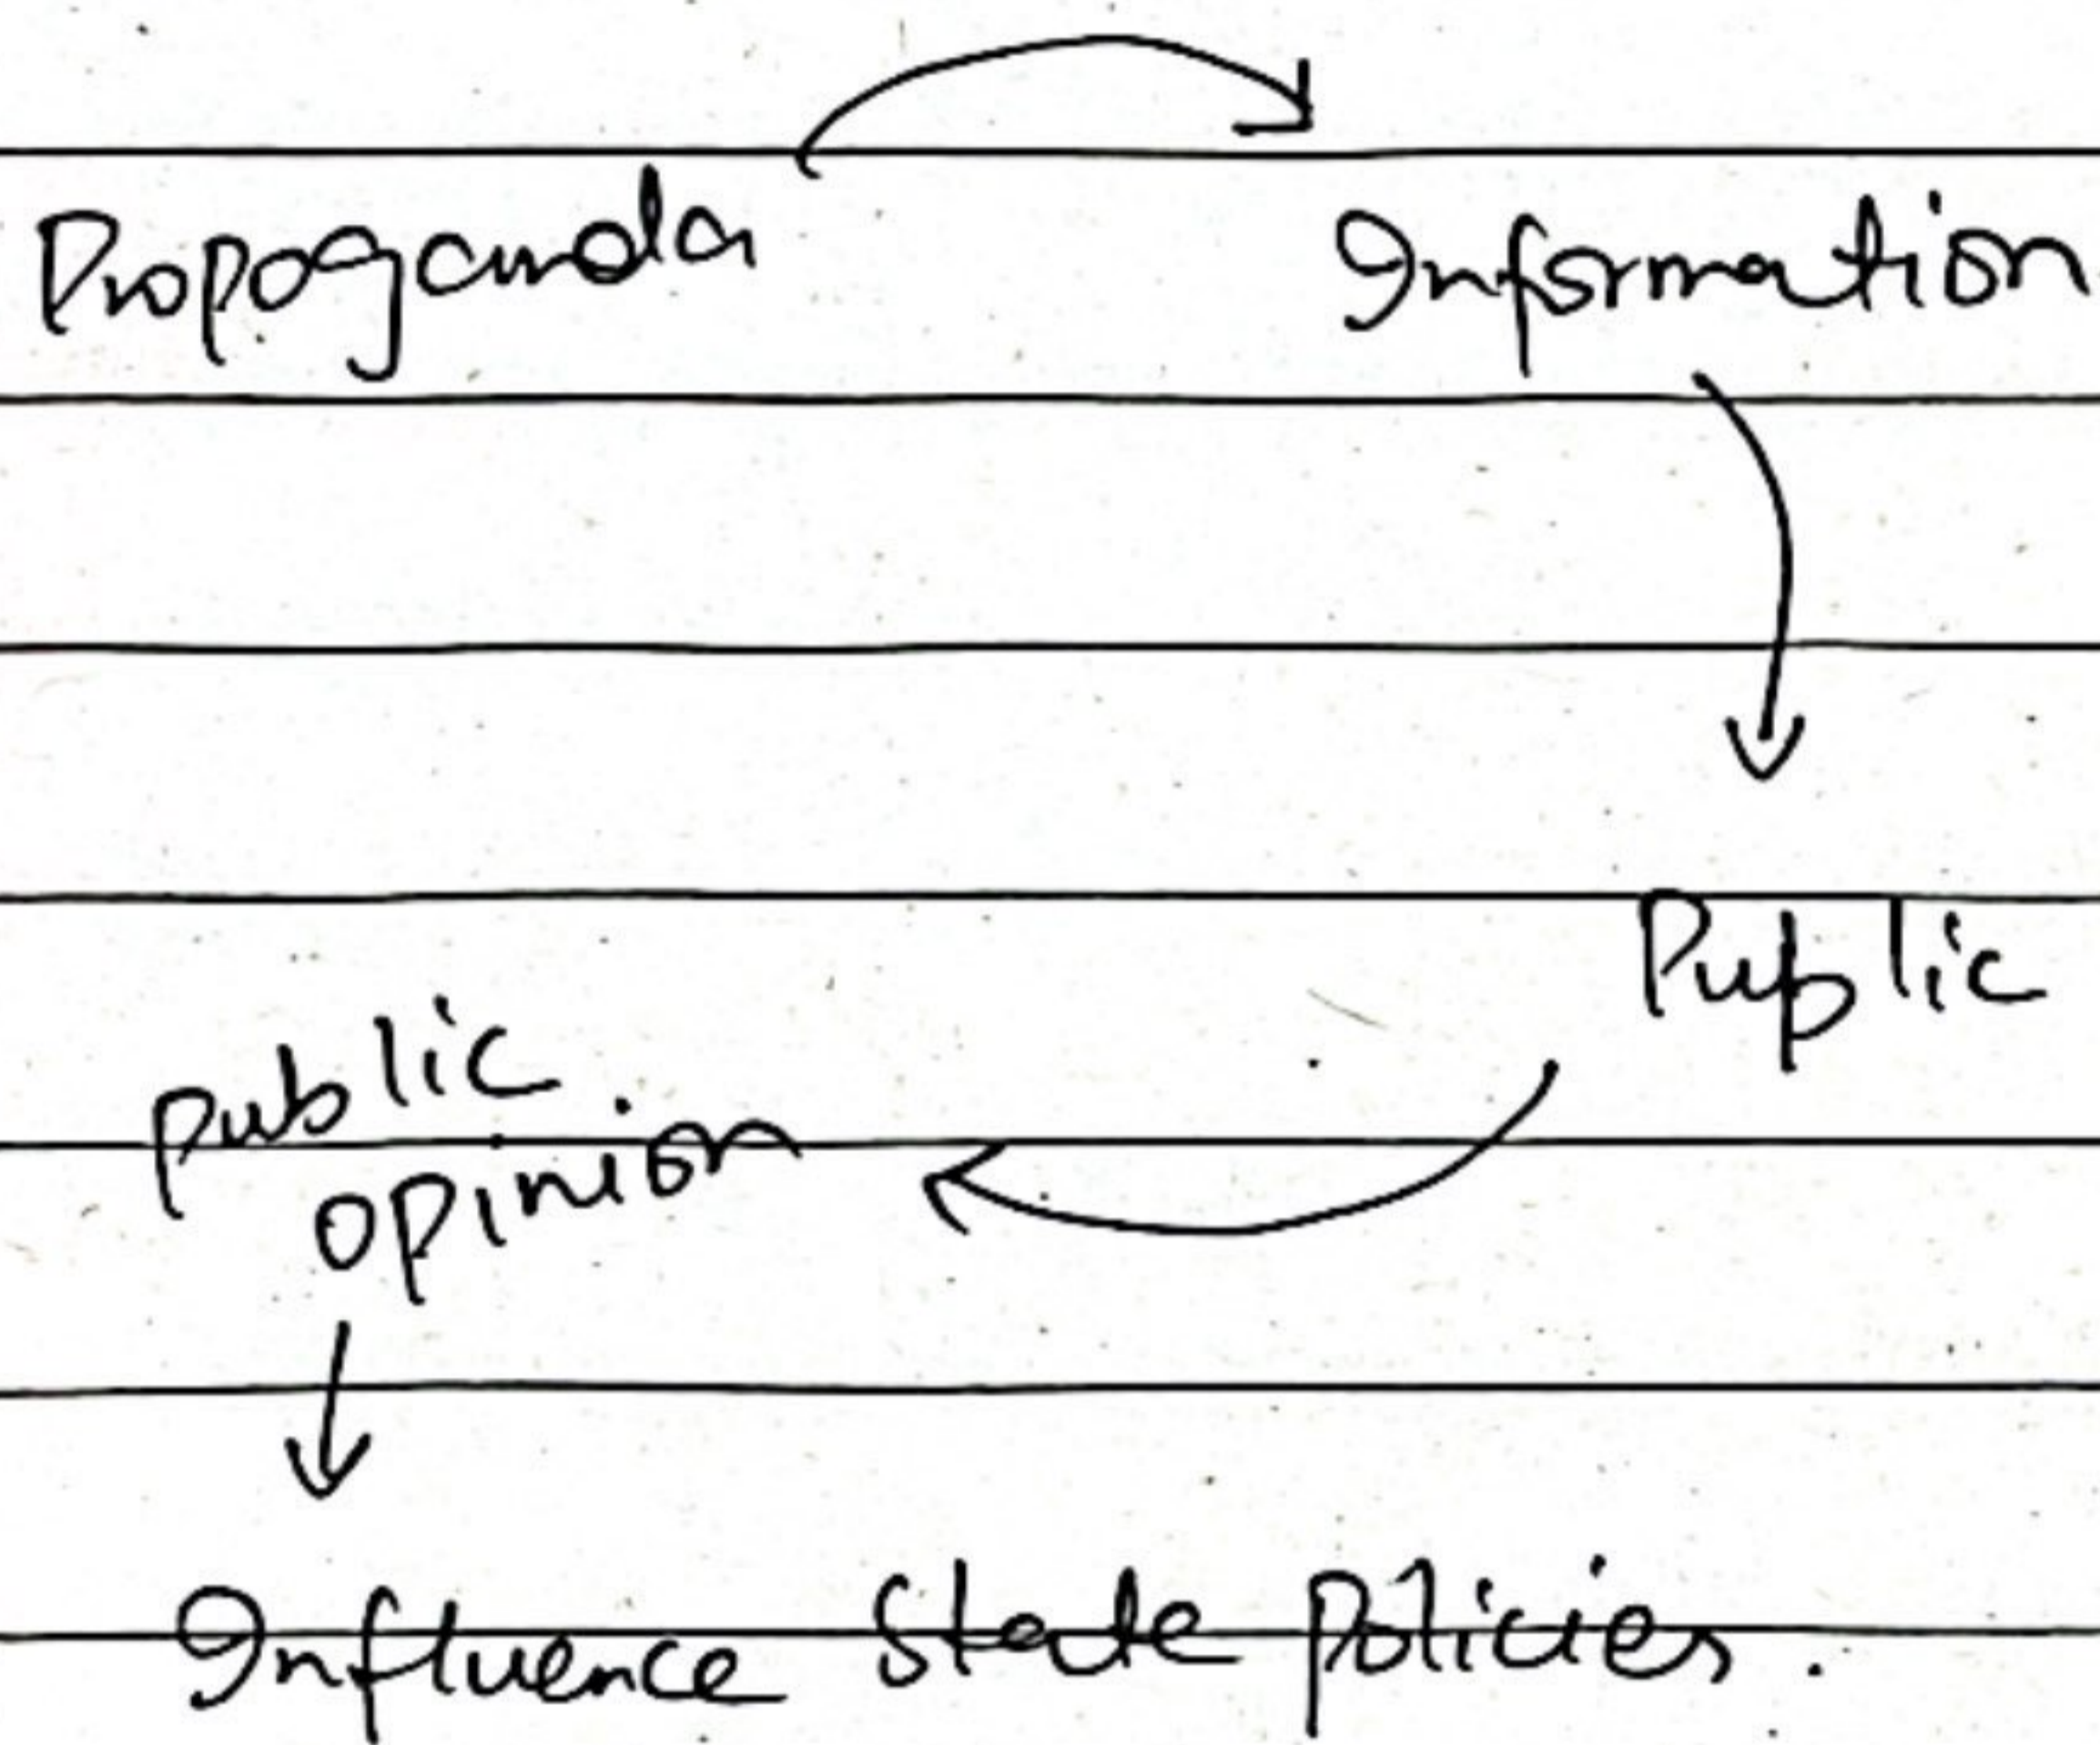 Propoganda Information
Public
Public
opinion
Influence State Policies.